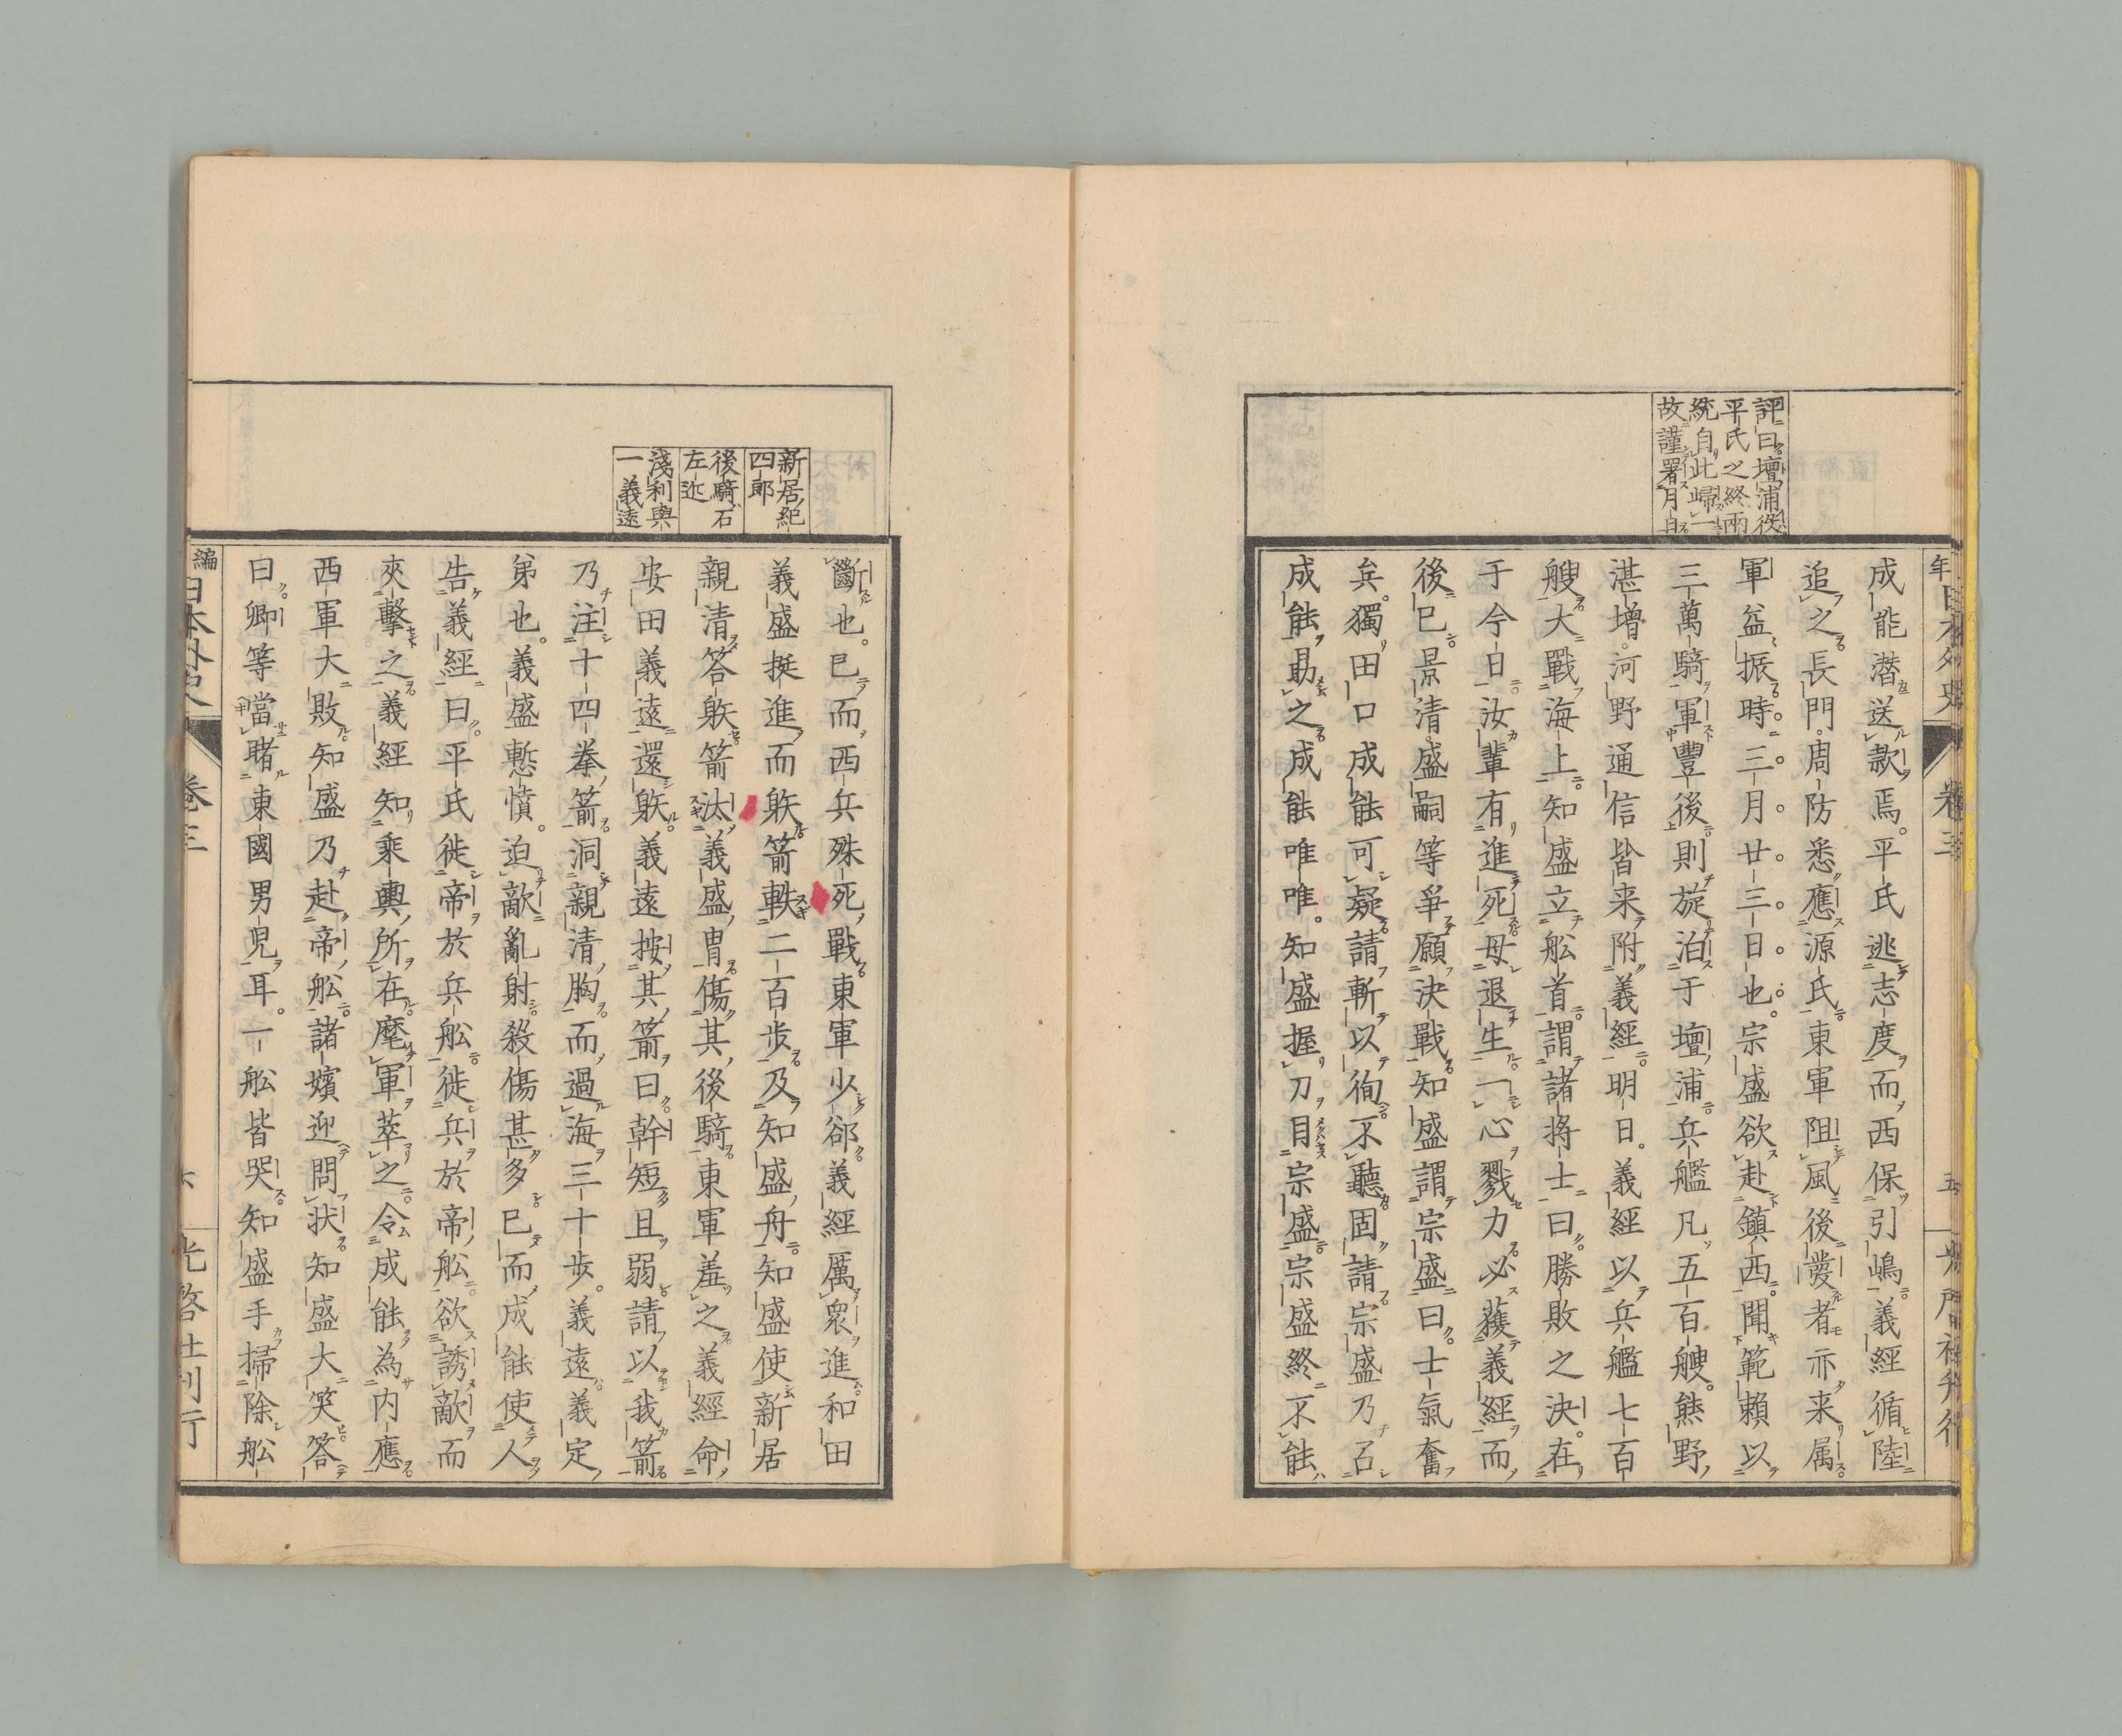 評曰壇浦役
平氏之終兩
統自此歸一
故謹署月日
成能潜送款焉。平氏逃志度而西保引嶋。義經循陸
追之長門。周防悉應源氏東軍阻風後發者亦来属
軍益振時三月廿三日也。宗盛欲赴鎮西。聞範頼以
三萬騎軍豐後則旋泊于壇浦兵艦凡五百艘。熊野
湛増。河野通信皆来附義經明日。義經以兵艦七百
艘大戰海上知盛立舩首謂諸將士曰勝敗之決。在
于今日汝輩有進死母退生一心戮力必獲義經而
後已。景清。盛嗣等爭願決戰知盛謂宗盛曰士氣奮
矣。獨田口成能可疑請斬以徇不聽固請宗盛乃召
成能勗之成能唯唯。知盛握刀目宗盛宗盛終不能
年日本外史
卷三
五
新居紀
四郎
後騎石
左近
淺利與
一義遠
斷也。已而西兵殊死戰東軍少郤義經厲衆進和田
義盛挺進而躲箭軼二百步及知盛舟知盛使新居
親清答躲箭汰義盛冑傷其後騎東軍羞之義經命
安田義遠還躲義遠按其箭曰幹短且弱請以我箭
乃注十四拳箭洞親清胸而過海三十步。義遠義定
弟也。義盛慙憤。迫敵亂射殺傷甚多已而成能使人
告義經曰。平氏徙帝於兵舩徙兵於帝舩欲誘敵而
夾擊之義經知乘輿所在麾軍萃之。令成能為内應
西軍大敗知盛乃赴帝舩諸嬪迎問状知盛大笑答
曰卿等當睹東國男兒耳。一舩皆哭知盛手掃除舩
編日本外史
卷三
六
光啓社刊行